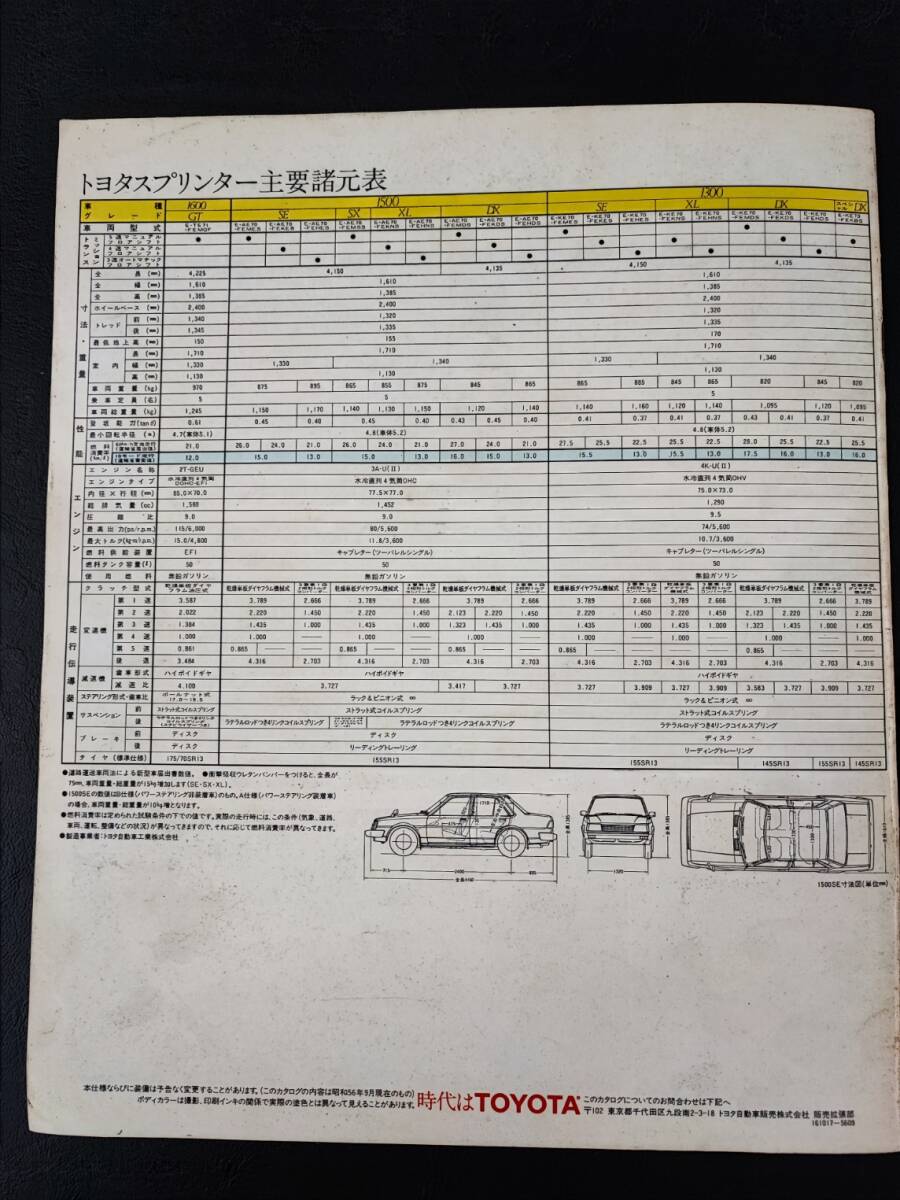 トヨタスプリンター主要諸元表
車種 1600 1500 1300
グレード GT SE SX XL DX SE XL DX スペシャル DX
車両型式
トランスミッション 5速マニュアルフロアシフト
4速マニュアルフロアシフト
3速オートマチックフロアシフト
寸法・重量
全長(mm) 4,225 4,150 4,135 4,150 4,135
全幅(mm) 1,610 1,610 1,610
全高(mm) 1,385 1,385 1,385
ホイールベース(mm) 2,400 2,400 2,400
トレッド 前(mm) 1,340 1,320 1,320
後(mm) 1,345 1,335 1,335
最低地上高(mm) 150 155 170
室内 長(mm) 1,710 1,710 1,710
幅(mm) 1,330 1,330 1,340 1,330 1,340
高(mm) 1,130 1,130 1,130
車両重量(kg) 970 875 895 865 855 875 845 865 865 885 845 865 820 845 820
乗車定員(名) 5 5 5
車両総重量(kg) 1,245 1,150 1,170 1,140 1,130 1,150 1,120 1,140 1,140 1,160 1,120 1,140 1,095 1,120 1,095
性能
登坂能力(tanθ) 0.61 0.45 0.40 0.45 0.40 0.43 0.45 0.40 0.41 0.37 0.41 0.37 0.43 0.41 0.37 0.41
最小回転半径(m) 4.7(車体5.1) 4.8(車体5.2) 4.8(車体5.2)
燃料消費率(km/ℓ) 60km/h定地走行(運輸省届出値) 21.0 26.0 24.0 21.0 26.0 24.0 21.0 27.0 24.0 21.0 27.5 25.5 22.5 25.5 22.5 28.0 25.5 22.5 25.5
10モード走行(運輸省審査値) 12.0 15.0 13.0 15.0 13.0 16.0 15.0 13.0 15.5 13.0 15.5 13.0 17.5 16.0 13.0 16.0
エンジン
エンジン名称 2T-GEU 3A-U(Ⅱ) 4K-U(Ⅱ)
エンジンタイプ 水冷直列4気筒DOHC・EFI 水冷直列4気筒OHC 水冷直列4気筒OHV
内径×行程(mm) 85.0×70.0 77.5×77.0 75.0×73.0
総排気量(cc) 1,588 1,452 1,290
圧縮比 9.0 9.0 9.5
最高出力(ps/r.p.m.) 115/6,000 80/5,600 74/5,600
最大トルク(kg-m/r.p.m.) 15.0/4,800 11.8/3,600 10.7/3,600
燃料供給装置 EFI キャブレター(ツーバレルシングル) キャブレター(ツーバレルシングル)
燃料タンク容量(ℓ) 50 50 50
使用燃料 無鉛ガソリン 無鉛ガソリン 無鉛ガソリン
走行伝導装置
クラッチ型式 乾燥単板ダイヤフラム油圧式 乾燥単板ダイヤフラム機械式 乾燥単板ダイヤフラム機械式 乾燥単板ダイヤフラム機械式 乾燥単板ダイヤフラム機械式
変速機 第1速 3.587 3.789 2.666 3.789 2.666 3.789 2.666 3.789 2.666 3.789 2.666 3.789 2.666 3.789
第2速 2.022 2.220 1.450 2.220 1.450 2.123 2.220 1.450 2.220 1.450 2.220 1.450 2.123 2.220 1.450 2.220
第3速 1.384 1.435 1.000 1.435 1.000 1.323 1.435 1.000 1.435 1.000 1.435 1.000 1.323 1.435 1.000 1.435
第4速 1.000 1.000 1.000 1.000 1.000 1.000 1.000 1.000
第5速 0.861 0.865 0.865 0.865 0.865 0.865
後退 3.484 4.316 2.703 4.316 2.703 4.316 2.703 4.316 2.703 4.316 2.703 4.316 2.703 4.316
減速機 歯車形式 ハイポイドギヤ ハイポイドギヤ ハイポイドギヤ
減速比 4.100 3.727 3.417 3.727 3.727 3.909 3.727 3.909 3.583 3.727 3.909 3.727
ステアリング形式・歯車比 ボールナット式 ラック&ピニオン式 ∞ ラック&ピニオン式 ∞
サスペンション 前 ストラット式コイルスプリング ストラット式コイルスプリング ストラット式コイルスプリング
後 ラテラルロッドつき4リンクコイルスプリング ラテラルロッドつき4リンクコイルスプリング ラテラルロッドつき4リンクコイルスプリング
ブレーキ 前 ディスク ディスク ディスク
後 ディスク リーディングトレーリング リーディングトレーリング
タイヤ(標準仕様) 175/70SR13 155SR13 155SR13 145SR13 155SR13 145SR13
●道路運送車両法による新型車届出書数値。 ●衝撃吸収ウレタンバンパーをつけると、全長が
75mm、車両重量・総重量が15kg増加します(SE・SX・XL)。
●1500SEの数値はB仕様(パワーステアリング非装着車)のもの。A仕様(パワーステアリング装着車)
の場合、車両重量・総重量が10kg増となります。
●燃料消費率は定められた試験条件の下での値です。実際の走行時には、この条件(気象、道路、
車両、運転、整備などの状況)が異なってきますので、それに応じて燃料消費率が異なってきます。
●製造事業者：トヨタ自動車工業株式会社
1500SE寸法図(単位mm)
本仕様ならびに装備は予告なく変更することがあります。(このカタログの内容は昭和56年9月現在のもの)
ボディカラーは撮影、印刷インキの関係で実際の塗色とは異なって見えることがあります。
時代はTOYOTA
このカタログについてのお問合わせは下記へ
〒102 東京都千代田区九段南2-3-18 トヨタ自動車販売株式会社 販売拡張部
161017-5609